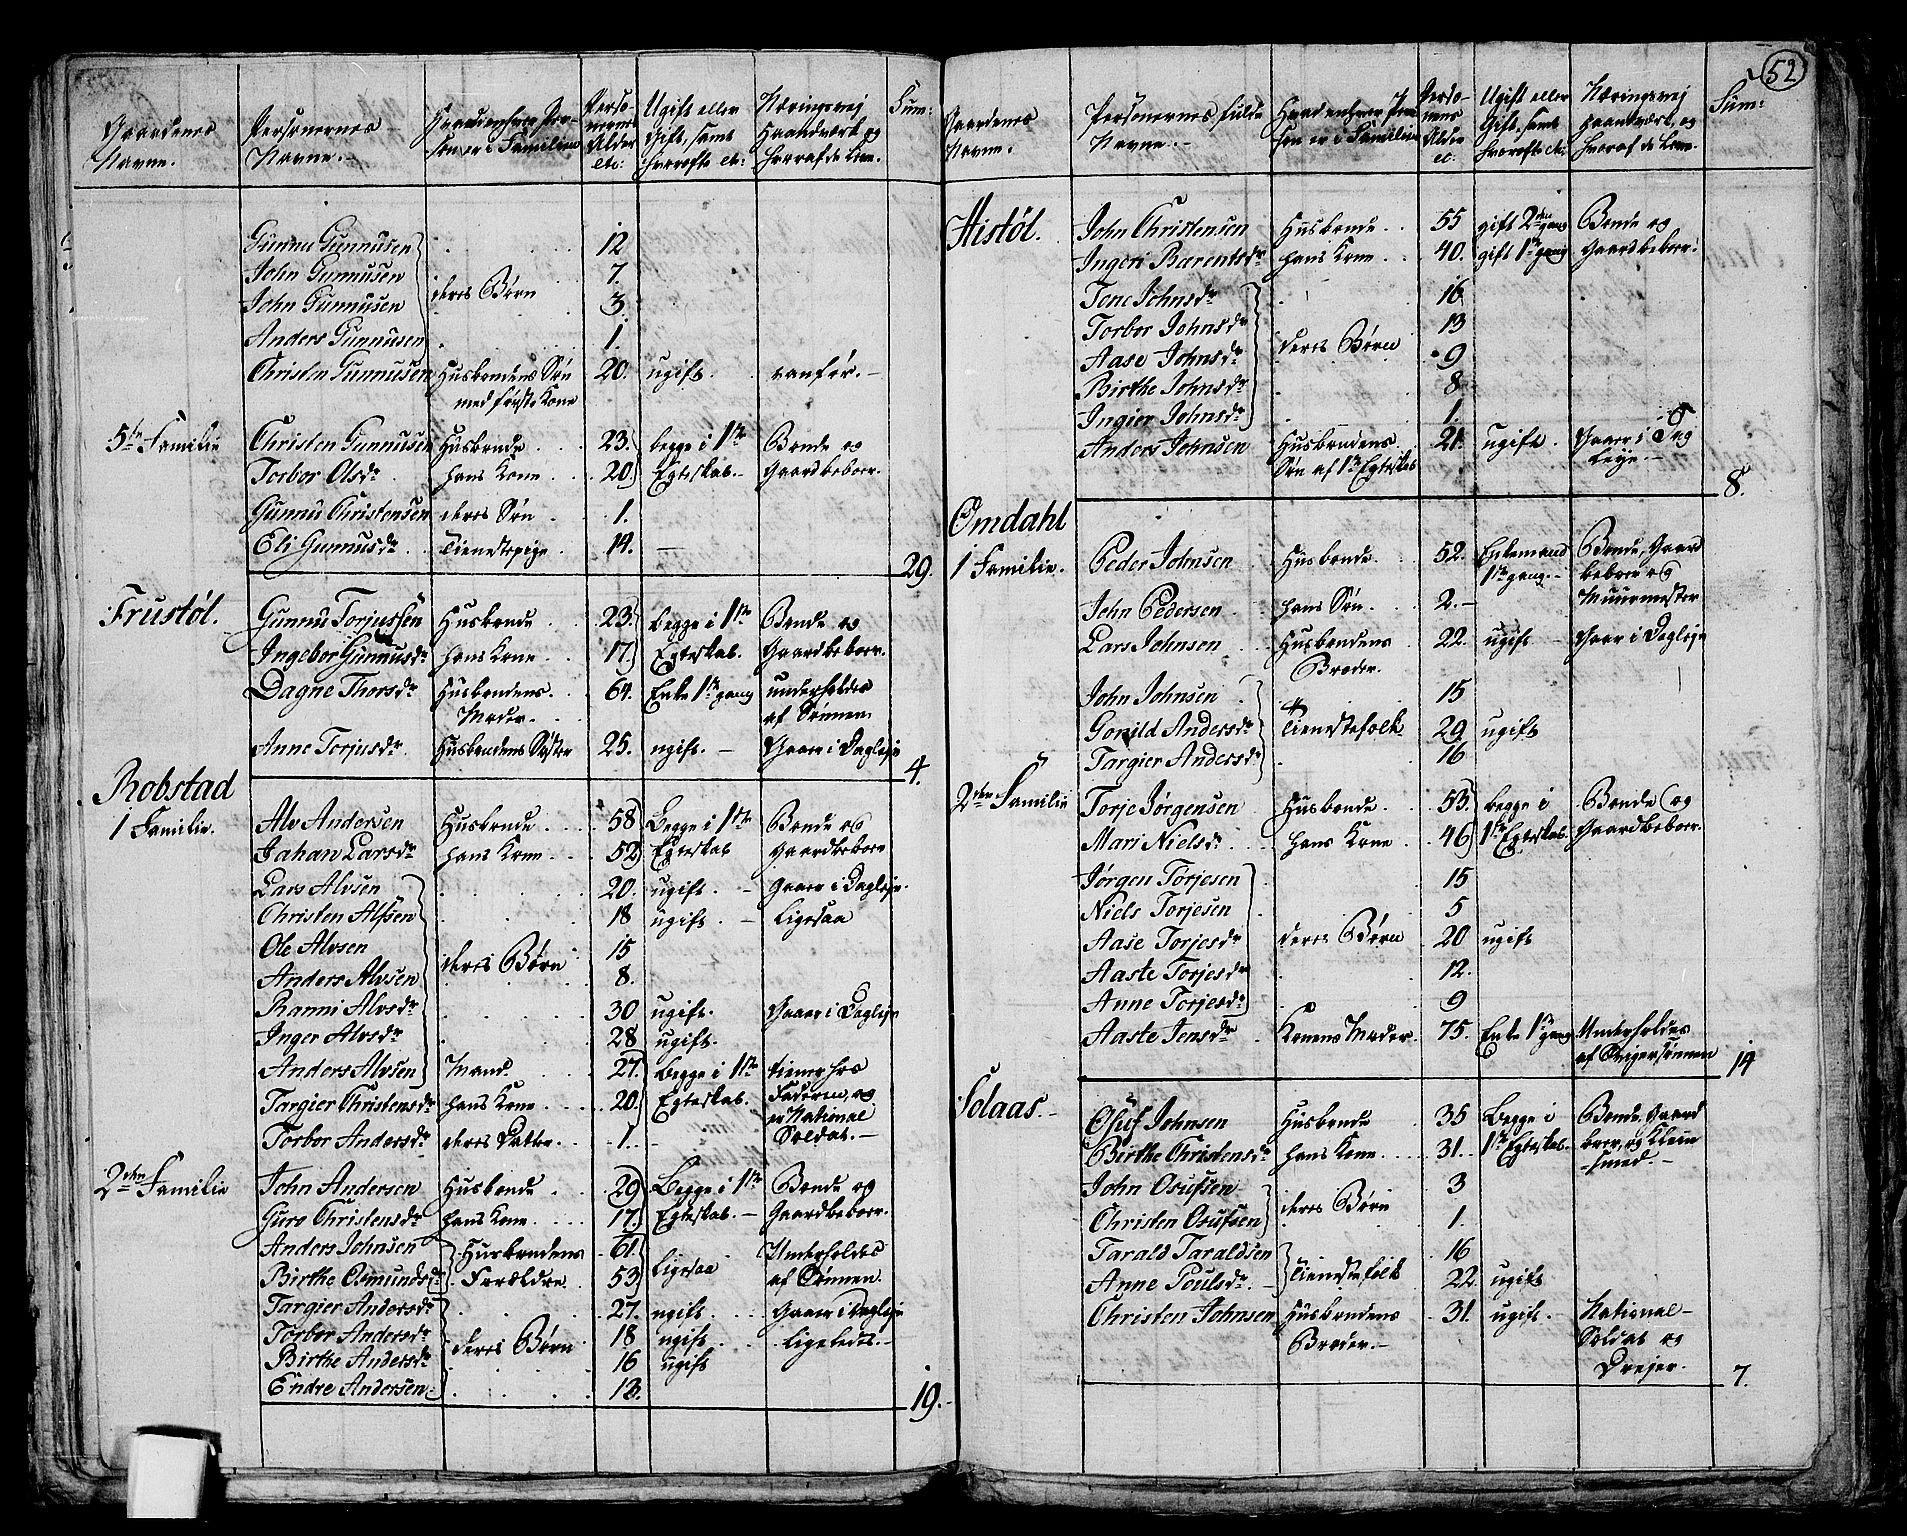 52
Gaardenes Navne. | Personernes Navne. | Hvad enhver Person er i Familien | Personernes Alder etc: | Ugift eller Gift, samt hvorofte etc: | Næringsvej Haandværk og hvoraf de Leve. | Sum:
Gunnu Gunnusen | 12
John Gunnusen | 7.
John Gunnusen | deres Børn | 3
Anders Gunnusen | 1.
Christen Gunnusen | Husbondens Søn | 20. | ugift. | vanfør.
med første Kone
5te Familie | Christen Gunnusen | Husbonde | 23. | begge i 1ste | Bonde og
Torbor Olsdr | hans Kone | 20 | Egteskab | Gaardbeboer.
Gunnu Christensen | deres Søn | 1.
Eli Gunnusdr | Tienestepige | 14. | —
29.
Frustøl. | Gunnu Torjussen | Husbonde | 23. | begge i 1ste | Bonde og
Ingebor Gunnusdr | hans Kone | 17. | Egteskab. | Gaardbeboer.
Dagne Thorsdr | Husbondens | 64. | Enke 1ste gang | underholdes
Moder. | af Sønnen
Anne Torjusdr | Husbondens Søster | 25. | ugift. | Gaaer i Dagleje
4.
Robstad
1 Familie. | Alv Andersen | Husbonde | 58 | Begge i 1ste | Bonde og
Jahan Larsdr | hans Kone | 52 | Egteskab | Gaardbeboer
Lars Alvsen | 20. | ugift. | Gaaer i Dagleje.
Christen Alfsen | 18 | ugift. | Ligesaa
Ole Alvsen | deres Børn | 15
Anders Alvsen | 8.
Ranni Alvsdr | 30 | ugift. | Gaaer i Dagleje
Inger Alvsdr | 28 | ugift.
Anders Alvsen | Mand | 27. | Begge i 1ste | tiener hos
Targier Christensdr | hans Kone | 20. | Egteskab. | Faderen, og
er National
Torbor Andersdr | deres Datter | 1. | Soldat.
2den Familie | John Andersen | Husbonde | 29 | Begge i 1ste | Bonde og
Guro Christensdr | hans Kone | 17. | Egteskab. | Gaardbeboer.
Anders Johnsen | Husbondens | 61. | Ligesaa | Underholdes
Birthe Osmundsdr | Forældre | 53 | af Sønnen.
Targier Andersdr | 27. | ugift. | Gaaer i Dagleje
Torbor Andersdr | deres Børn | 18 | ugift. | Ligeledes.
Birthe Andersdr | 16 | ugift
Endre Andersen | 13.
19.
Gaardenes Navne. | Personernes fulde Navne. | Hvad enhver Person er i Familien | Personernes Alder etc: | Ugift eller Gift, samt hvorofte etc: | Næringsvej Haandværk, og hvoraf de Leve. | Sum:
Histøl. | John Christensen | Husbonde | 55 | gift 2den gang | Bonde og
Ingeri Barentsdr | hans Kone | 40. | gift 1ste gang | Gaardbeboer.
Tone Johnsdr | 16
Torbor Johnsdr | 13
Aase Johnsdr | deres Børn | 9
Birthe Johnsdr | 8
Ingier Johnsdr | 1.
Anders Johnsen | Husbondens | 21. | ugift. | Gaaer i Dag
Søn af 1ste Egteskab | Leje.
8.
Omdahl
1 Familie. | Peder Johnsen | Husbonde | 52. | Enkemand | Bonde, Gaard
1ste gang. | beboer og
John Pedersen | hans Søn | 2. | Muurmester
Lars Johnsen | Husbondens | 22. | ugift | Gaaer i Dagleje
Broder.
John Johnsen | 15
Gonild Andersdr | Tienestefolk | 29 | ugift
Targier Andersdr | 16
2den Familie | Torje Jørgensen | Husbonde | 53. | begge i | Bonde og
Mari Nielsdr | hans Kone | 46 | 1ste Egteskab. | Gaardbeboer.
Jørgen Torjesen | 15
Niels Torjesen | 5
Aase Torjesdr | deres Børn | 20 | ugift
Aaste Torjesdr | 12.
Anne Torjesdr | 9
Aaste Jensdr | Konens Moder. | 75. | Enke 1ste gang | Underholdes
af Svigersønnen
14
Solaas. | Osuf Johnsen | Husbonde | 35 | Begge i | Bonde, Gaard
Birthe Christensdr | hans Kone | 31. | 1ste Egteskab | boer, og Klein
smed.
John Osufsen | deres Børn | 3
Christen Osufsen | 1.
Tarald Taraldsen | Tienestefolk | 16
Anne Poulsdr | 22 | ugift
Christen Johnsen | Husbondens | 31. | ugift. | National
Broder. | Soldat og
Drejer.
7.